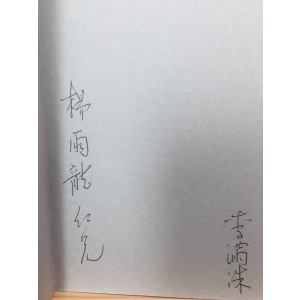 楊雨龍 仁兄
李滿洙